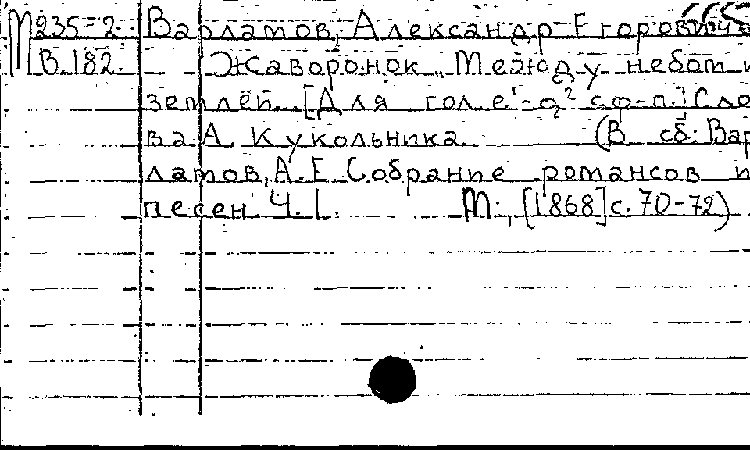 М235=2 Варламов, Александр Егорович
В.182. Жаворонок „Между небом и
землёй. [Для гол. е'-g² с ф-п.] Сло-
ва А. Кукольника. (В сб: Вар-
ламов, А.Е. Собрание романсов и
песен Ч. I. М., [1868] с. 70-72)